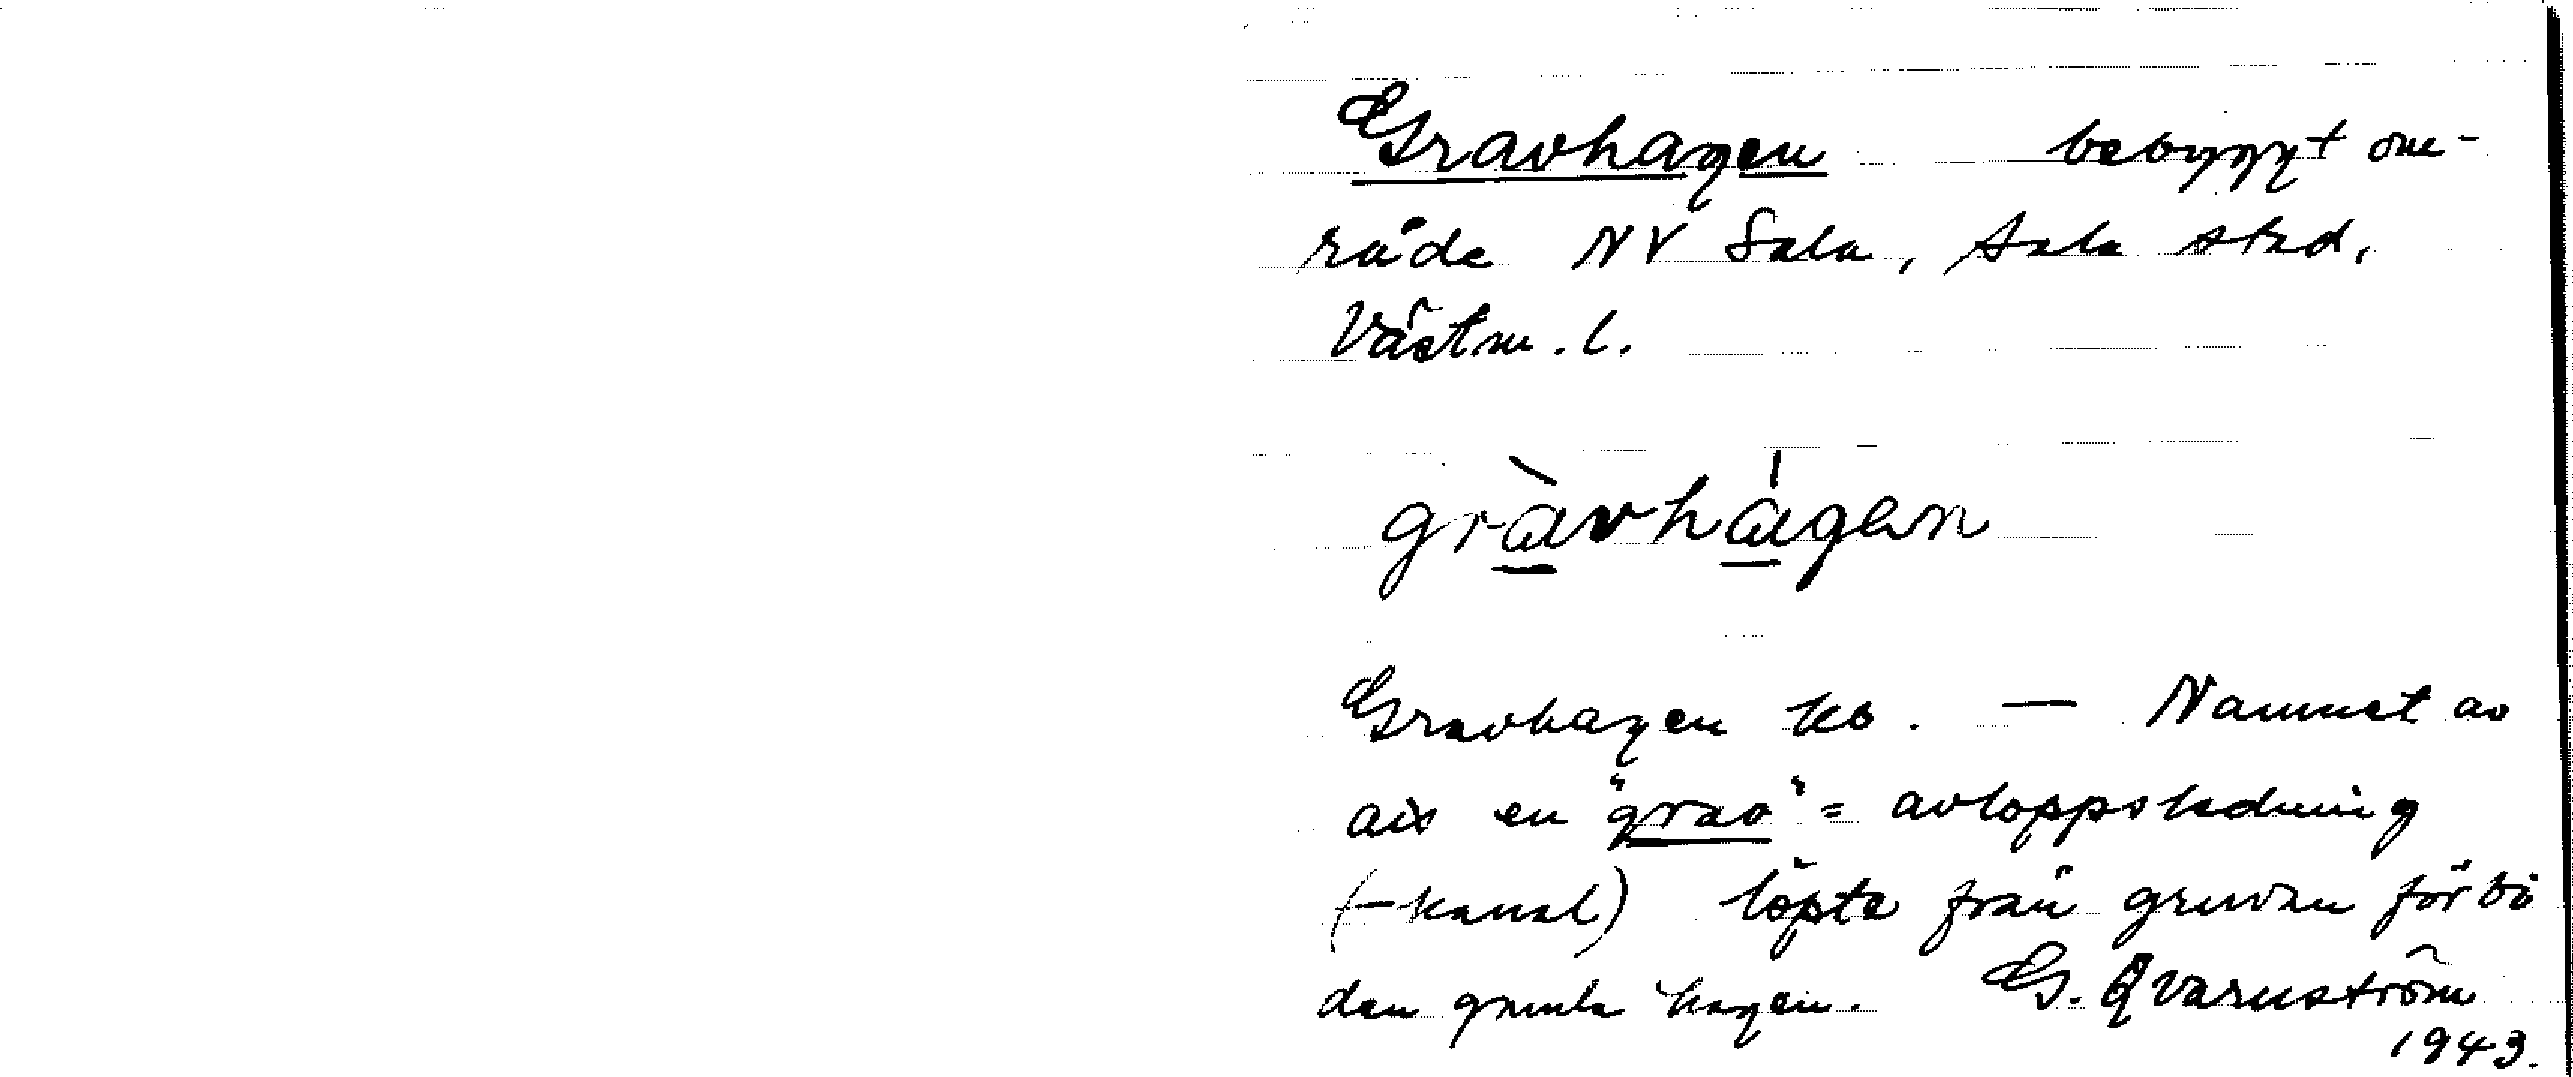 Gravhagen bebyggt om-
råde NV Sala, Sala stad,
Västm. l.
gràvhágen
Gravhagen kb. — Namnet av
att en "grav" = avloppsledning
(-kanal) löpte från gruvan förbi
den gamla hagen. G. Qvarnström
1943.